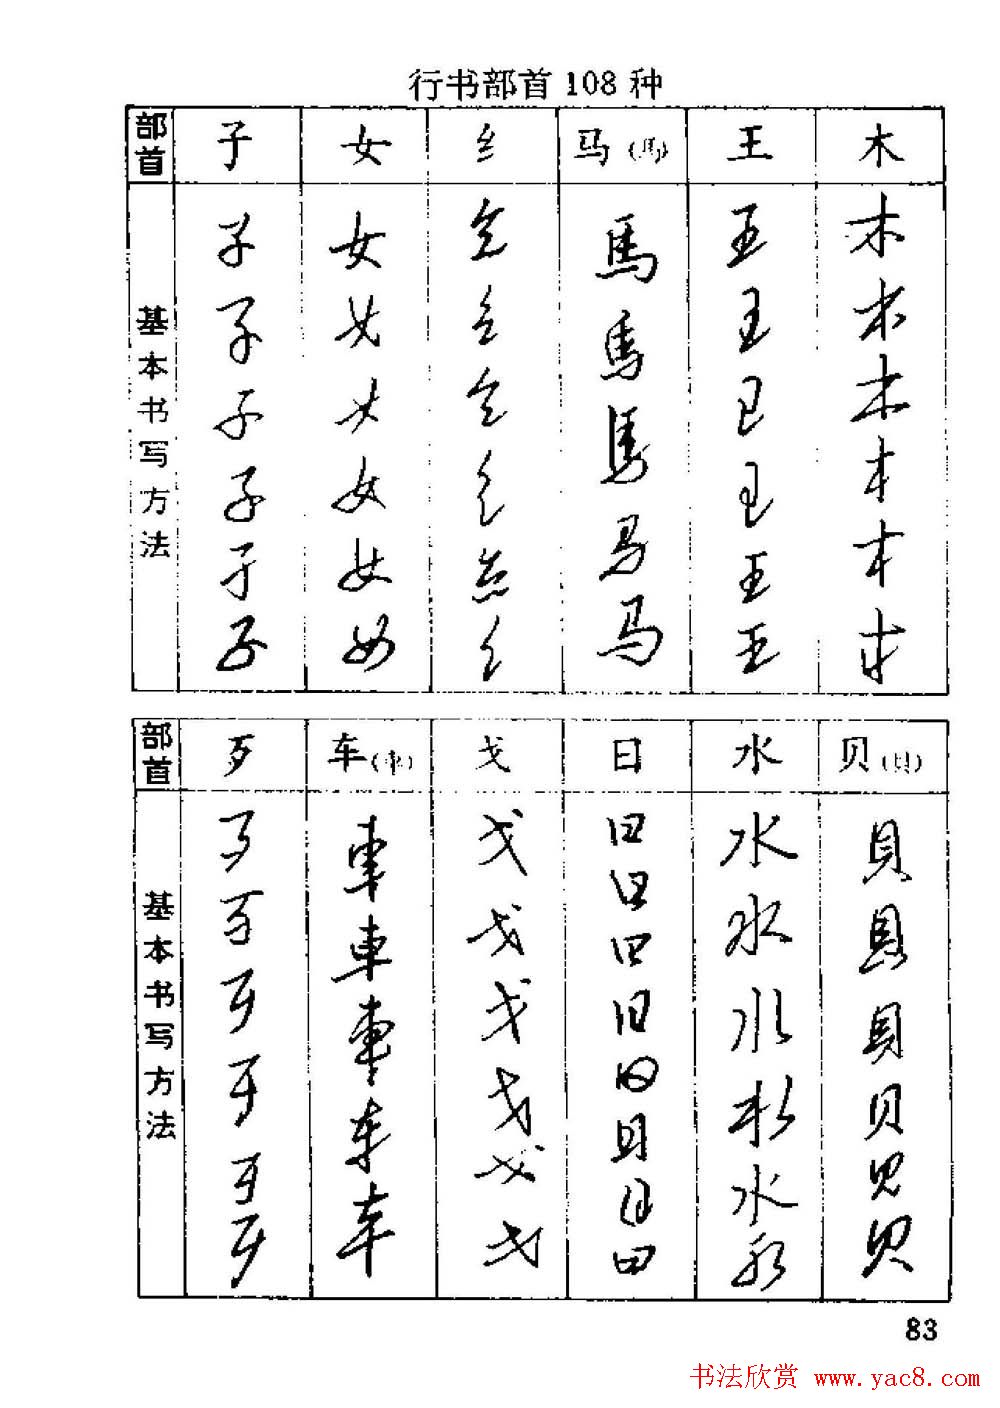 行书部首108种
部首 子 女 纟 马(馬) 王 木
基本书写方法
子 女 纟 馬 王 木
子 女 纟 馬 王 木
子 女 纟 馬 王 木
子 女 纟 马 王 木
子 女 纟 马 王 木
子 女 纟 王 木
部首 歹 车(車) 戈 日 水 贝(貝)
基本书写方法
歹 車 戈 日 水 貝
歹 車 戈 日 水 貝
歹 車 戈 日 水 貝
歹 车 戈 日 水 贝
歹 车 戈 日 水 贝
歹 戈 日 水 贝
日
日
83
书法欣赏 www.yac8.com